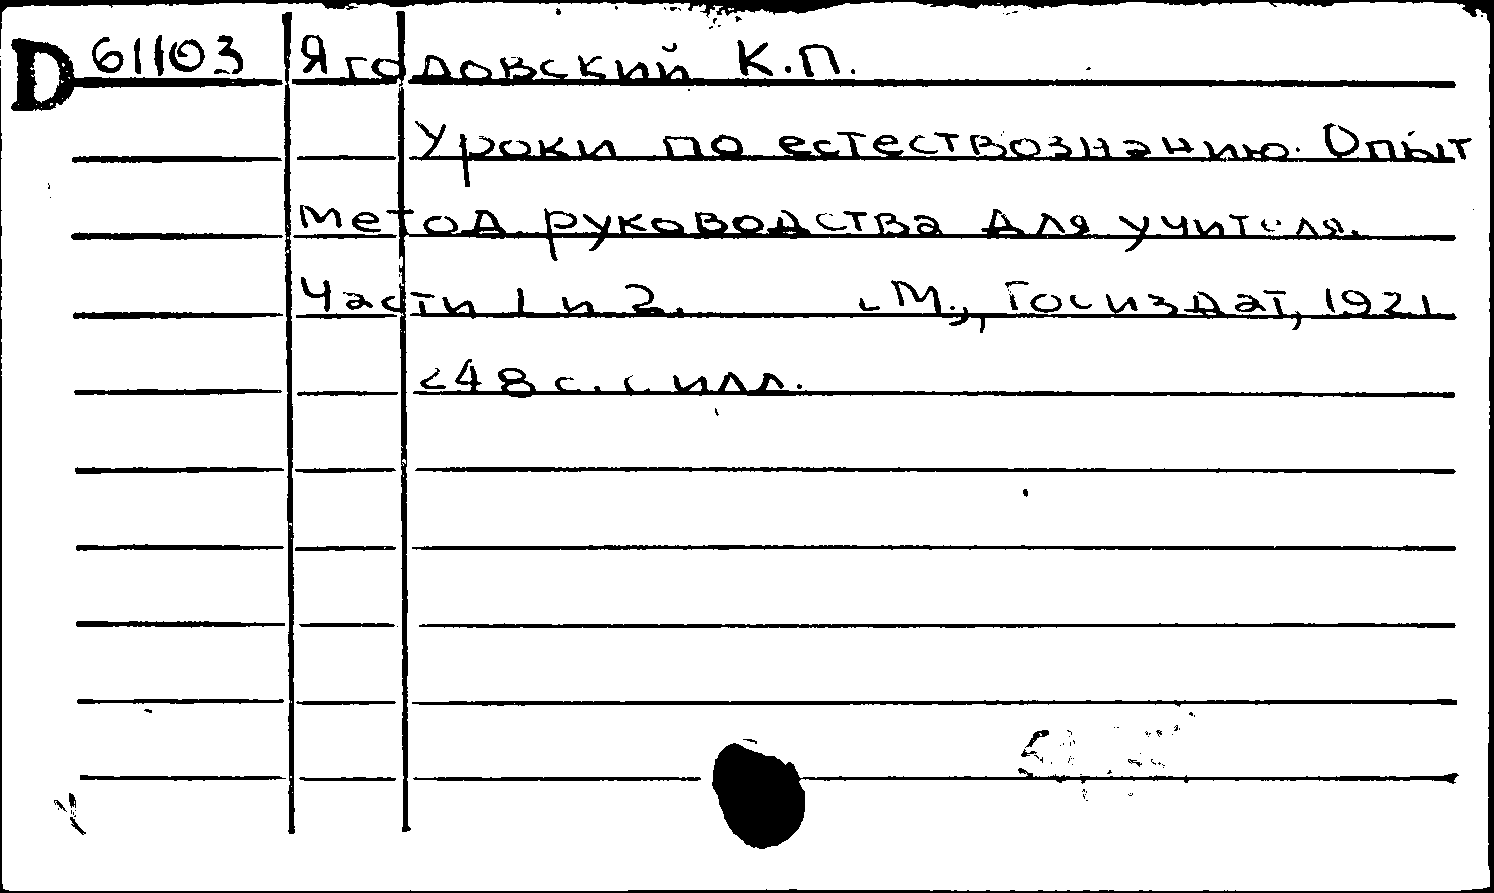 D 61103 Ягодовский К.П.
Уроки по естествознанию. Опыт
метод. руководства для учителя.
Части 1 и 2. М., Госиздат, 1921
248 с. с илл.